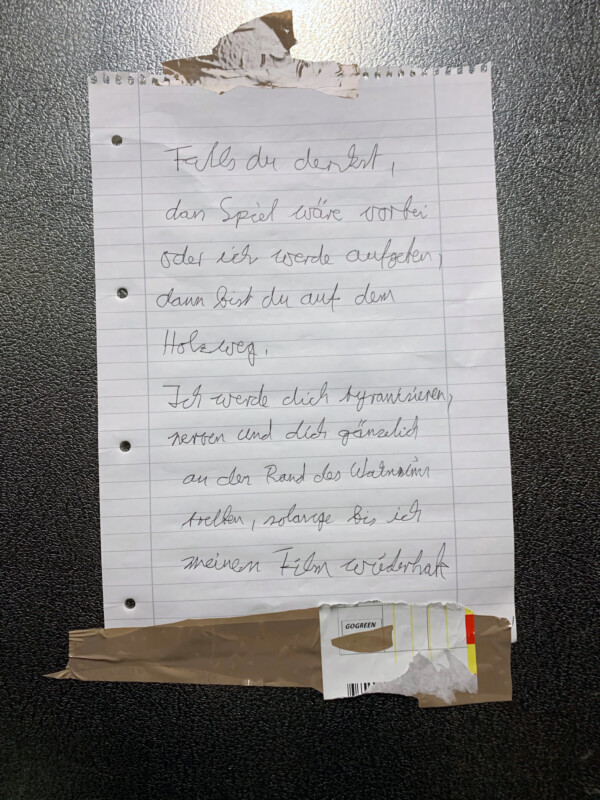 Falls du denkst,
das Spiel wäre vorbei
oder ich werde aufgeben,
dann bist du auf dem
Holzweg.
Ich werde dich tyrannisieren,
nerven und dich gänzlich
an den Rand des Wahnsinns
treiben, solange bis ich
meinen Film wiederhab
GOGREEN